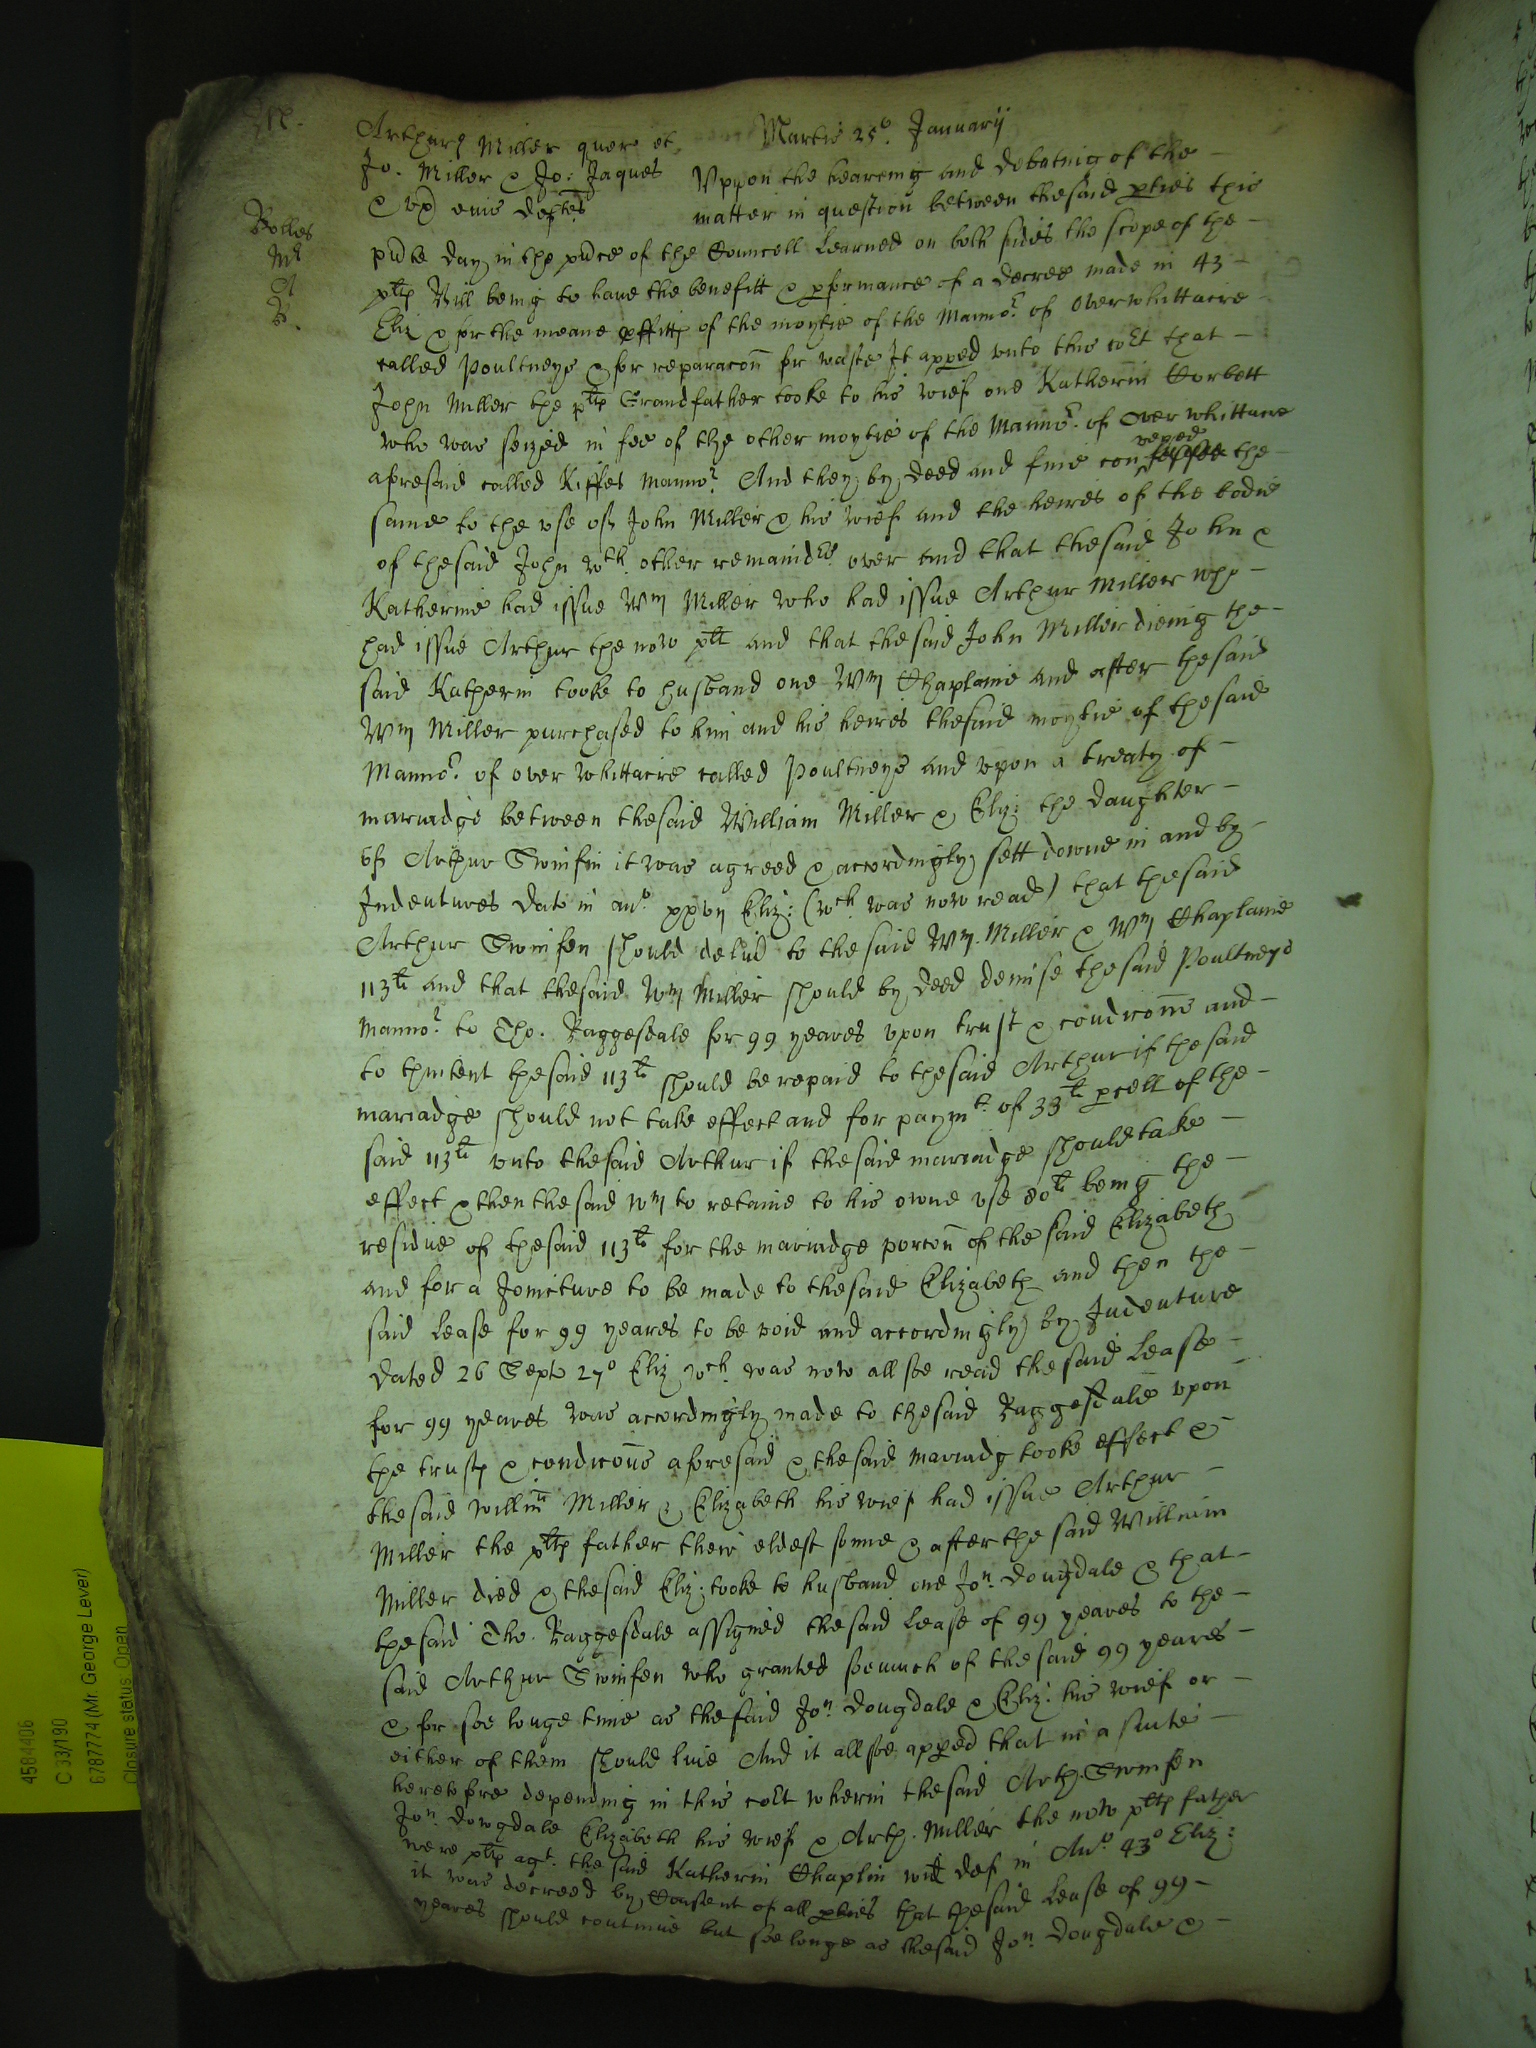 Martis 25°. Januarij
Arthurus Miller quer et
Jo. Miller & Jo: Jaques
& ux eius deftes
Rolles
Mr
A
B.
Uppon the heareing and debateing of the
matter in question between thesaid pties this
pnte day in the pnce of the Councell Learned on both sides the scope of the
pltes Bill being to have the benefitt & pformance of a decree made in 43
Eliz & for the meane pffitts of the moytie of the Manno.r of Over whittacre
called Poultneys & for reparacon for waste It apped unto this co:rt that
John Miller the pltes Grandfather tooke to his wief one Katherin Corbett
who was seized in fee of the other moytie of the Manno.r of Over whittacre
aforesaid called Kiffes Manno.r And they by deed and fine con veyed the
same to the use of John Miller & his wief and the heires of the bodie
of thesaid John wth. other remaindrs. over and that thesaid John &
Katherine had issue Wm Miller who had issue Arthur Miller who
had issue Arthur the now plt and that thesaid John Miller dieing the
said Katherin tooke to husband one Wm Chaplaine and after thesaid
Wm Miller purchased to him and his heires thesaid moytie of thesaid
Manno.r of over whittacre called Poultneys and upon a treaty of
mariadge between thesaid William Miller & Eliz: the daughter
of Arthur Swinfin it was agreed & accordingly sett downe in and by
Indentures dat in an°. xxvij Eliz: (wch was now read) that thesaid
Arthur Swinfen should deliv to the said Wm. Miller & Wm Chaplaine
113li and that thesaid Wm Miller should by deed demise thesaid Poultneys
Manno.r to Tho. Raggesdale for 99 yeares upon trust & condicons and
to thintent thesaid 113li should be repaid to thesaid Arthur if thesaid
mariadge should not take effect and for paymt. of 33li pcell of the
said 113li unto thesaid Arthur if thesaid mariadge should take
effect & then thesaid Wm to retaine to his owne use 80li being the
residue of thesaid 113li for the mariadge porcon of the said Elizabeth
and for a Joincture to be made to thesaid Elizabeth and then the
said Lease for 99 yeares to be void and accordingly by Indenture
dated 26 Sept 27° Eliz wch. was now allsoe read thesaid Lease
for 99 yeares was accordingly made to thesaid Raggesdale upon
the trust & condicons aforesaid & thesaid mariadg tooke effect &
thesaid Willm Miller & Elizabeth his wief had issue Arthur
Miller the pltes father their eldest sonne & after the said William
Miller died & thesaid Eliz: tooke to husband one Jon. Dougdale & that
thesaid Tho. Raggesdale assigned thesaid Lease of 99 yeares to the
said Arthur Swinfen who granted soemuch of thesaid 99 yeares
& for soe longe time as thesaid Jon. Dougdale & Eliz: his wief or
either of them should live And it allsoe apped that in a suite
heretofore depending in this co:rt wherin thesaid Arth. Swinfen
Jon. Dowgdale Elizabeth his wief & Arth. Miller the now pltes father
were pltes agt. the said Katherin Chaplin wid def in An°. 43° Eliz:
it was decreed by Consent of all pties that thesaid Lease of 99
yeares should continue but soe longe as thesaid Jon. Dougdale &
4584406
C 33/190
6787774 (Mr. George Lever)
Closure status: Open